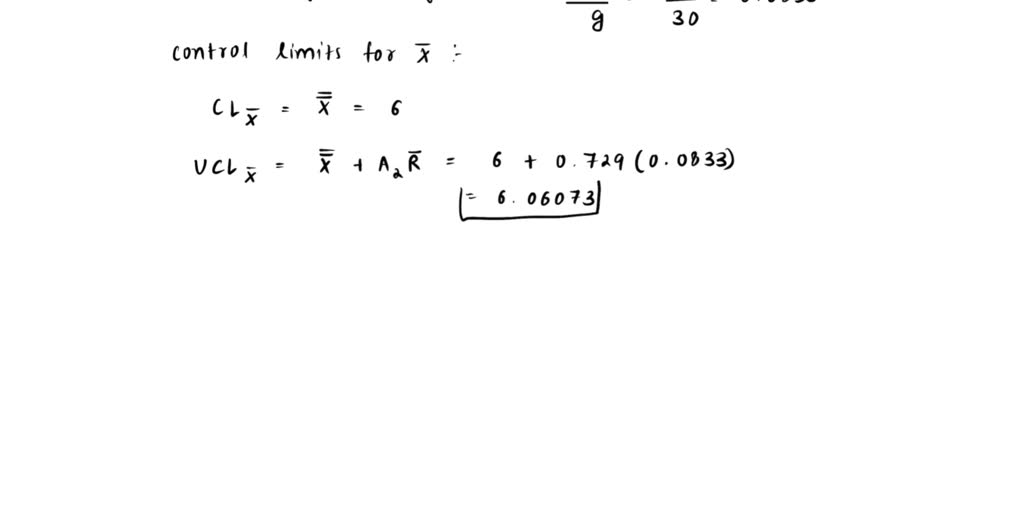 g 30
control limits for x̄ :-
CL x̄ = x̿ = 6
UCL x̄ = x̿ + A₂ R̄ = 6 + 0.729 (0.0833)
= 6.06073